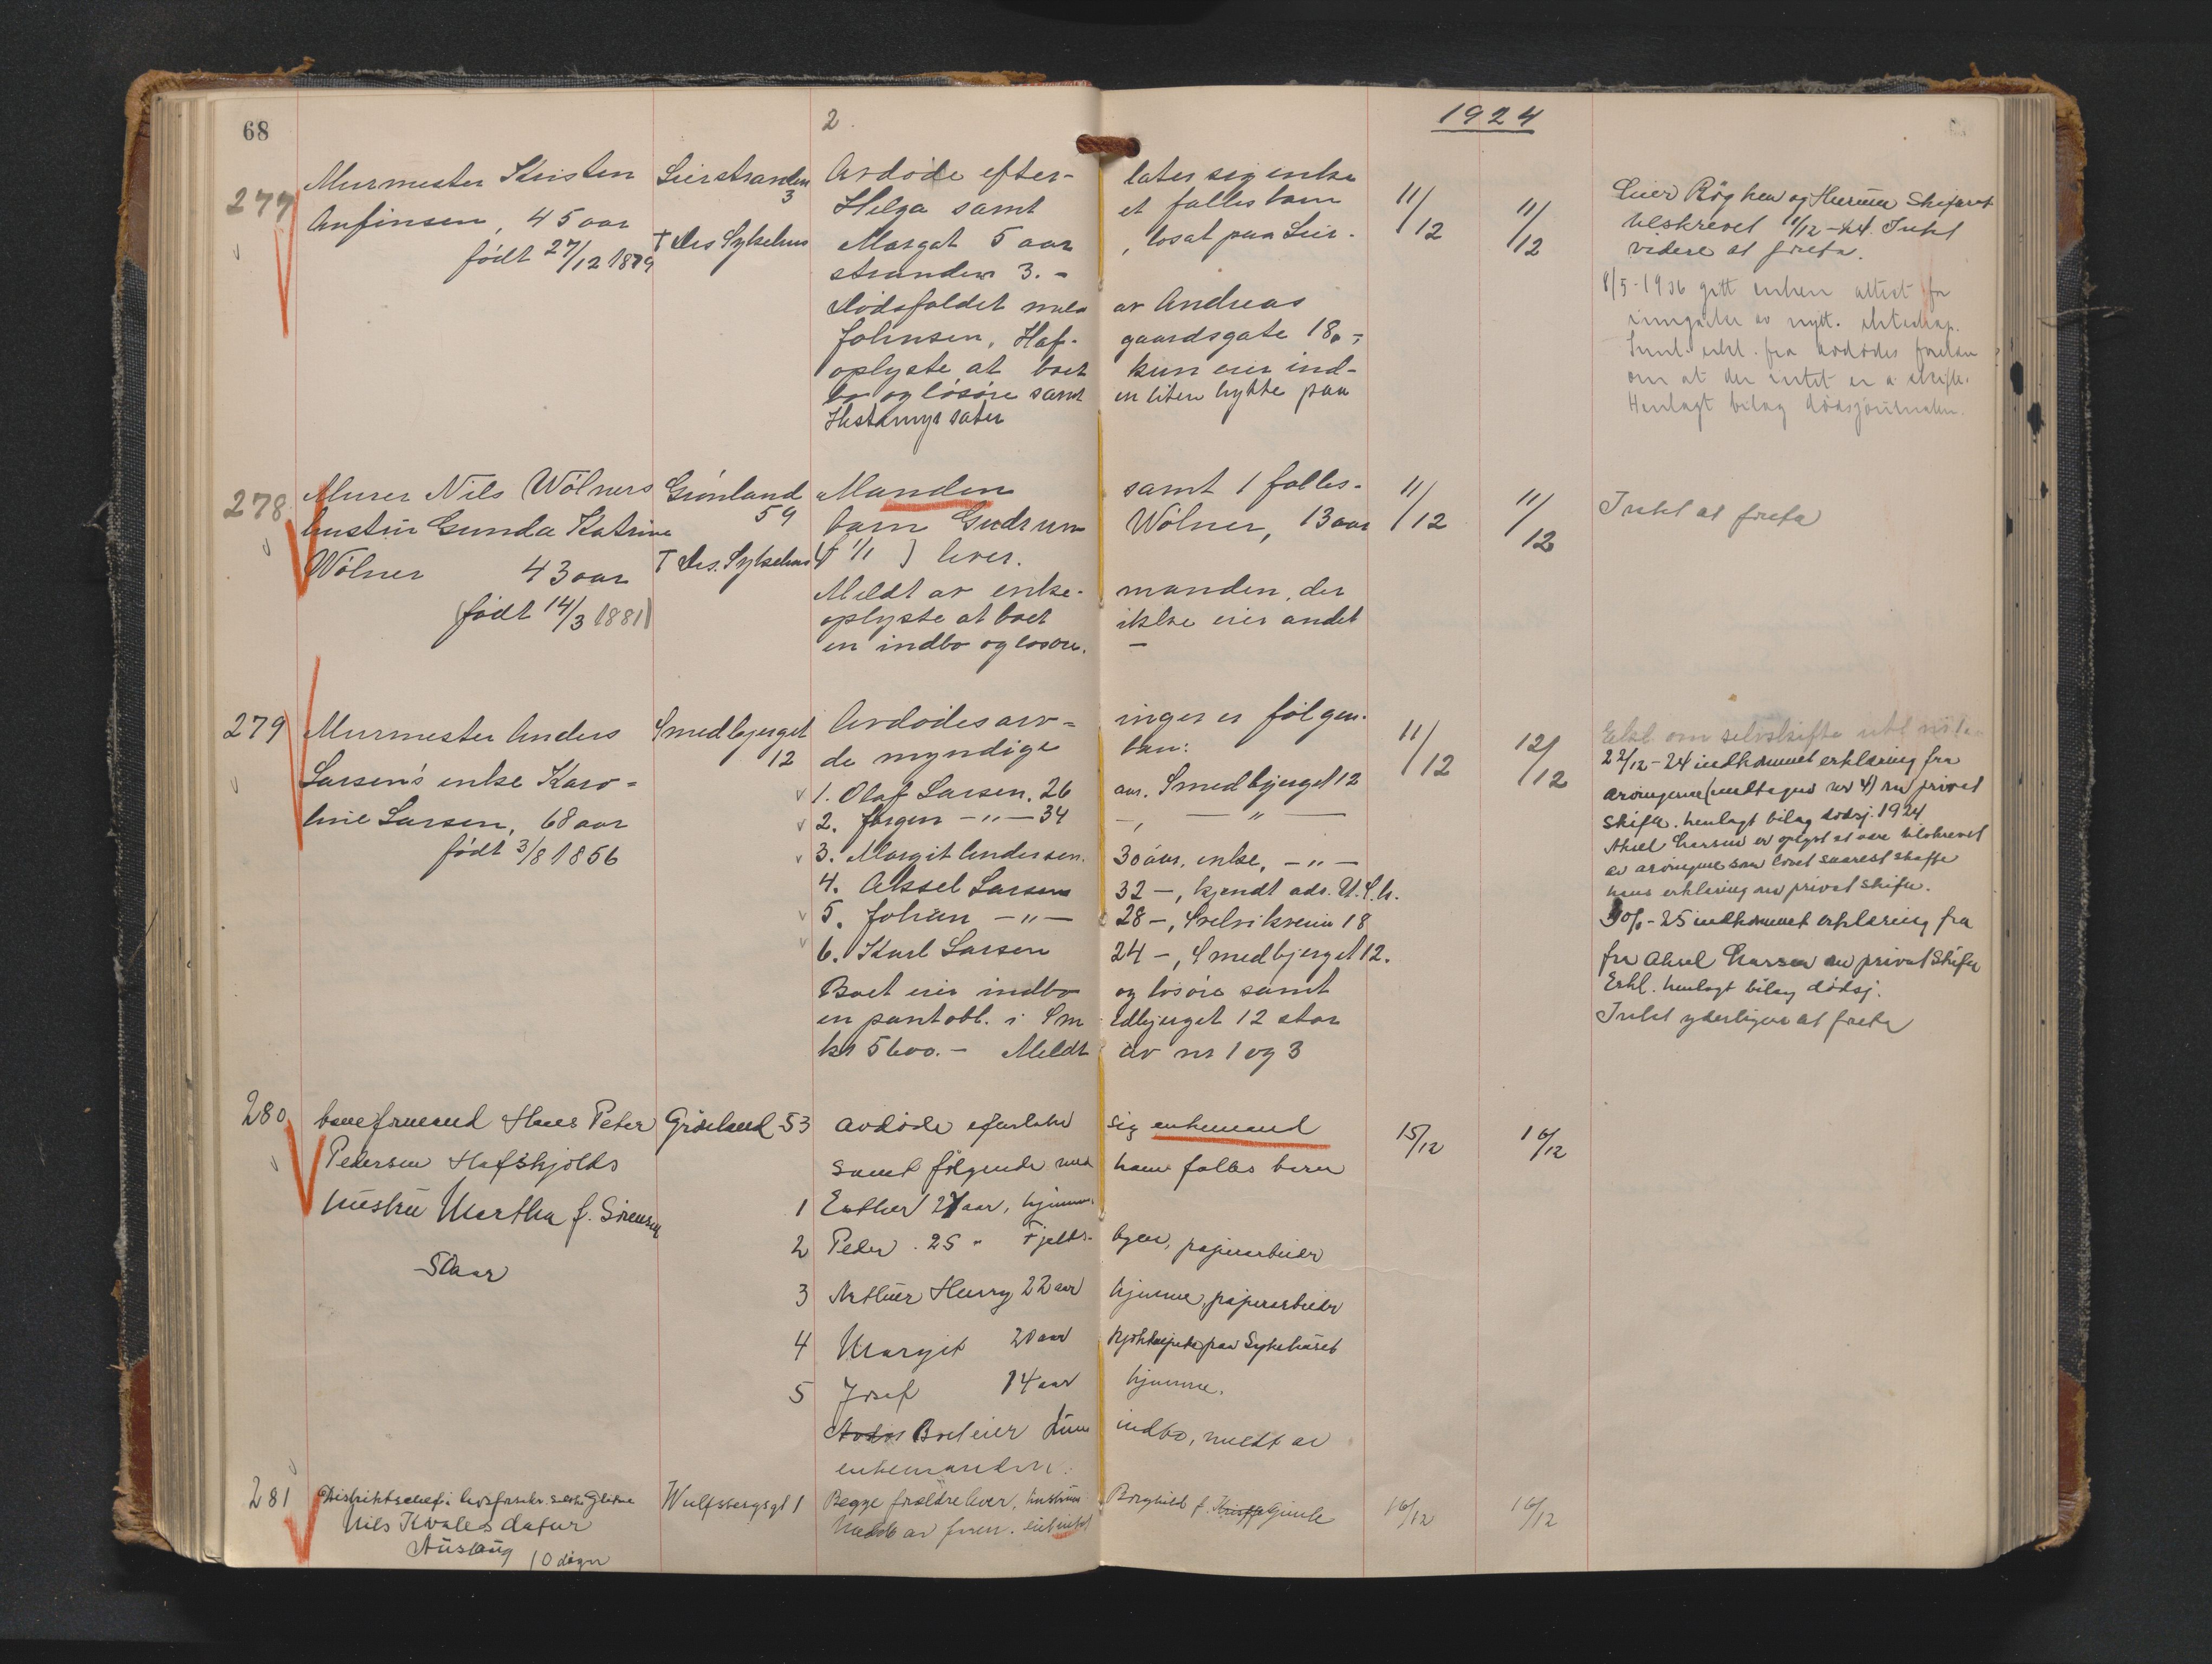 68
2
1924
277
Murmester Kristen
Anfinsen, 45 aar
født 27/12 1879
Lierstranden
3
† Drs Sykehus
Avdøde efter- later sig enke
Helga samt et fælles barn
Margat 5 aar, bosat paa Lier-
stranden 3. -
Dødsfaldet meld av Andreas
Johnsen, Haf- gaardsgate 18,
oplyste at boet kun eier ind-
bo og løsøre samt en liten hytte paa
sæter
11/12
11/12
Lier Røyken og Hurum Skifteret
tilskrevet 11/12-24. Intet
videre at foreta.
8/5-1936 gitt enken attest for
inngåelse av nytt ekteskap.
erkl. fra avdødes foreldre
om at der intet er å skifte.
Henlagt bilag dødsjournalen.
278
Murer Nils Wølners
hustru Gunda Katrine
Wølner 43 aar
(født 14/3 1881)
Grønland
59
† Drs. Sykehus
Manden samt 1 fælles-
barn Gudrun Wølner, 13 aar
lever.
Meldt av enke- manden, der
oplyste at boet ikke eier andet
en indbo og løsøre. -
11/12
11/12
Intet at foreta
279
Murmester Anders
Larsen's enke Karo-
line Larsen, 68 aar
født 3/8 1856
Smedbjerget
12
Avdødes arv- inger er følgen-
de myndige barn:
1. Olaf Larsen, 26 aar. Smedbjerget 12
2. Jørgen -"- 34 -, - " -
3. Margit Andersen. 30 aar, enke, -"-
4. Aksel Larsen 32 -, kjendt adr. U.S.A.
5. Johan -"- 28 -, Svelvikveien 18
6. Karl Larsen 24 -, Smedbjerget 12.
Boet eier indbo og løsøre samt
en pantobl. i Sm edbjerget 12 stor
kr 5600.- Meldt av nr 1 og 3
11/12
12/12
Erkl. om selvskifte utl
22/12-24 indkommet erklæring fra
arvingerne (undtagen nr 4) om privat
skifte. henlagt bilag dødsj. 1924
Aksel Larsen er oplyst at være tilskrevet
av arvingerne som lovet snarest skaffe
hans erklæring om privat skifte.
-25 indkommet erklæring fra
fra Aksel Larsen om privat skifte
Erkl. henlagt bilag dødsj.
Intet yderligere at foreta
280
baneformand Hans Peter
Pedersen Hafskjolds
hustru Martha f. Sørensen
aar
Grønland 53
Avdøde efterlater sig enkemand
samt følgende med ham fælles barn
1 Esther 27 aar, hjemme
2 Peder. 25 " Fjelds- byen, papirarbeider
3 Arthur Harry 22 aar hjemme, papirarbeider
4 Margit 20 aar kjøkkenpike paa Sykehuset
5 Josef 14 aar hjemme.
Boet eier kun indbo, meldt av
enkemanden.
15/12
16/12
281
Distriktschef i livsforsikr. selsk. Gjensidige
Nils Kvales datter
Aüslaug 10 døgn
Wulfsbergsgt 1
Begge forældre lever, hustru Borghild f. Gimle
Meldt av faren. Eiet intet
16/12
16/12